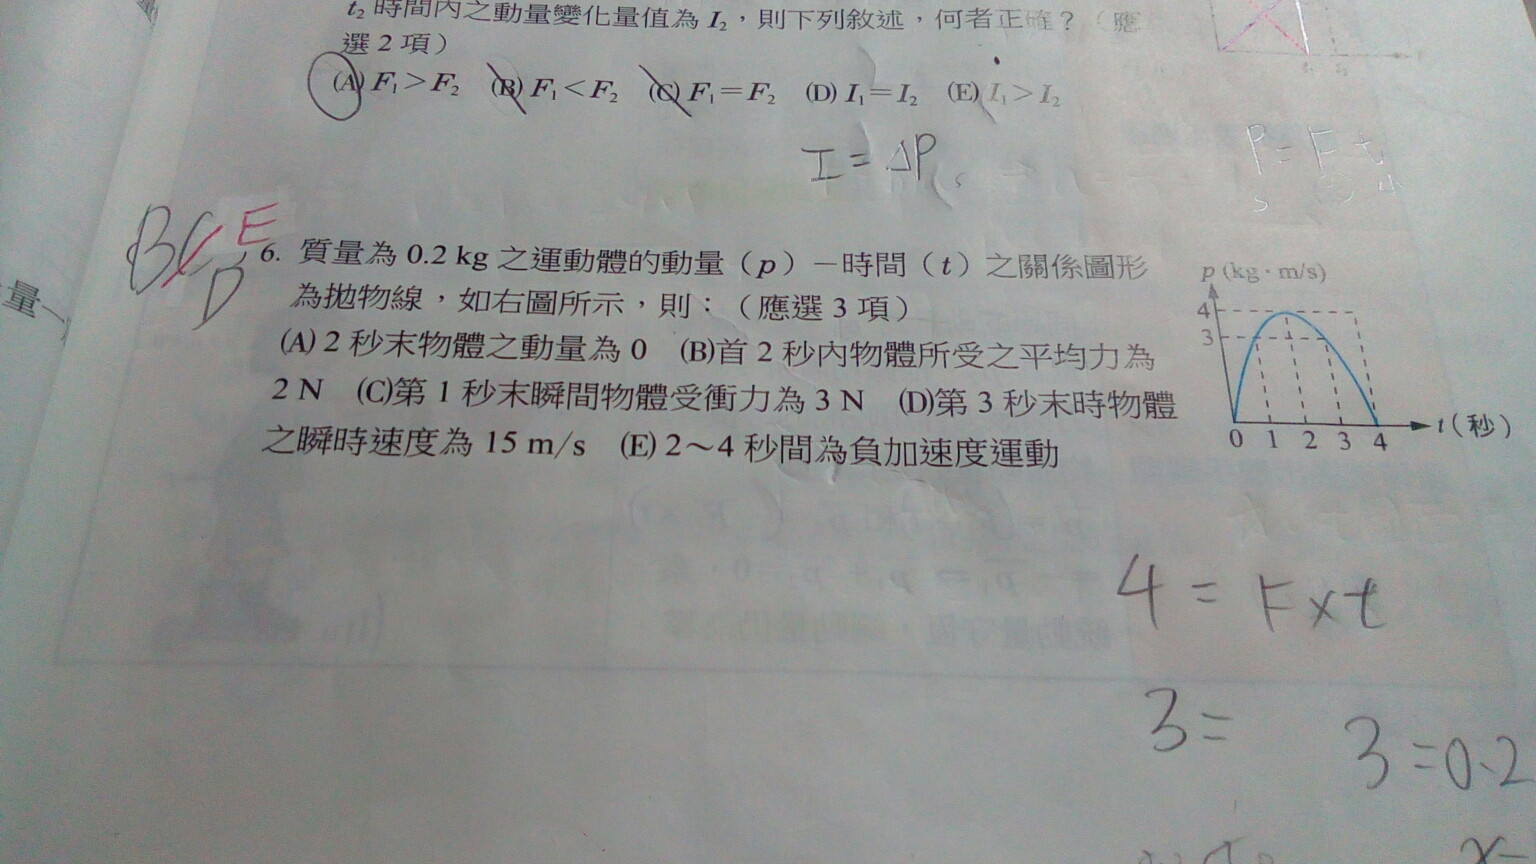 t₂ 時間內之動量變化量值為 I₂,則下列敘述,何者正確?(應
選 2 項)
(A) F₁ > F₂ (B) F₁ < F₂ (C) F₁ = F₂ (D) I₁ = I₂ (E) I₁ > I₂
I = ΔP
P = F t
BC E
D
6. 質量為 0.2 kg 之運動體的動量(p)-時間(t)之關係圖形
為拋物線,如右圖所示,則:(應選 3 項)
(A) 2 秒末物體之動量為 0 (B)首 2 秒內物體所受之平均力為
2 N (C)第 1 秒末瞬間物體受衝力為 3 N (D)第 3 秒末時物體
之瞬時速度為 15 m/s (E) 2~4 秒間為負加速度運動
p (kg · m/s)
4
3
0 1 2 3 4 t(秒)
量
4 = F×t
3 =
3 = 0.2